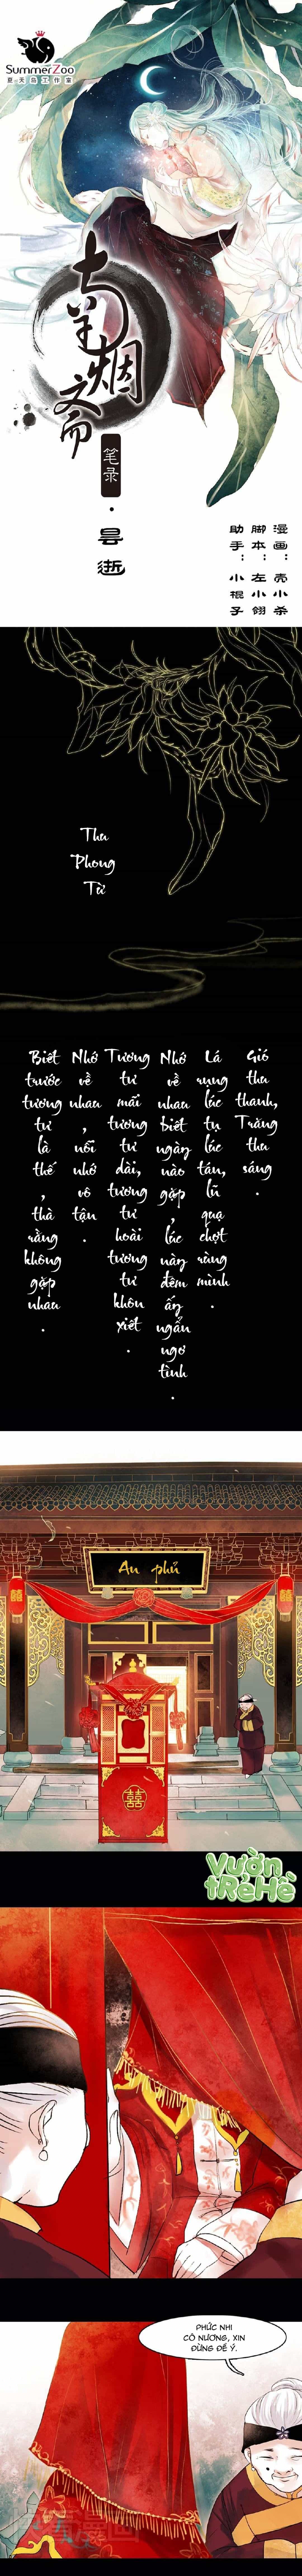 SummerZoo
夏天岛工作室
南烟斋
笔录
·
昙逝
漫画：壳小杀
脚本：左小翎
助手：小棍子
Thu
Phong
Từ
Gió thu thanh, Trăng thu sáng.
Lá rụng lúc tụ lúc tán, lũ quạ chợt rùng mình.
Nhớ về nhau biết ngày nào gặp, lúc này đêm ấy ngẩn ngơ tình.
Tương tư mãi tương tư dài, tương tư hoài tương tư khôn xiết.
Nhớ về nhau, nỗi nhớ vô tận.
Biết trước tương tư là thế, thà rằng không gặp nhau.
An phủ
囍
囍
囍
Vườn
tRẻ Hè
PHỨC NHI
CÔ NƯƠNG, XIN
ĐỪNG ĐỂ Ý.